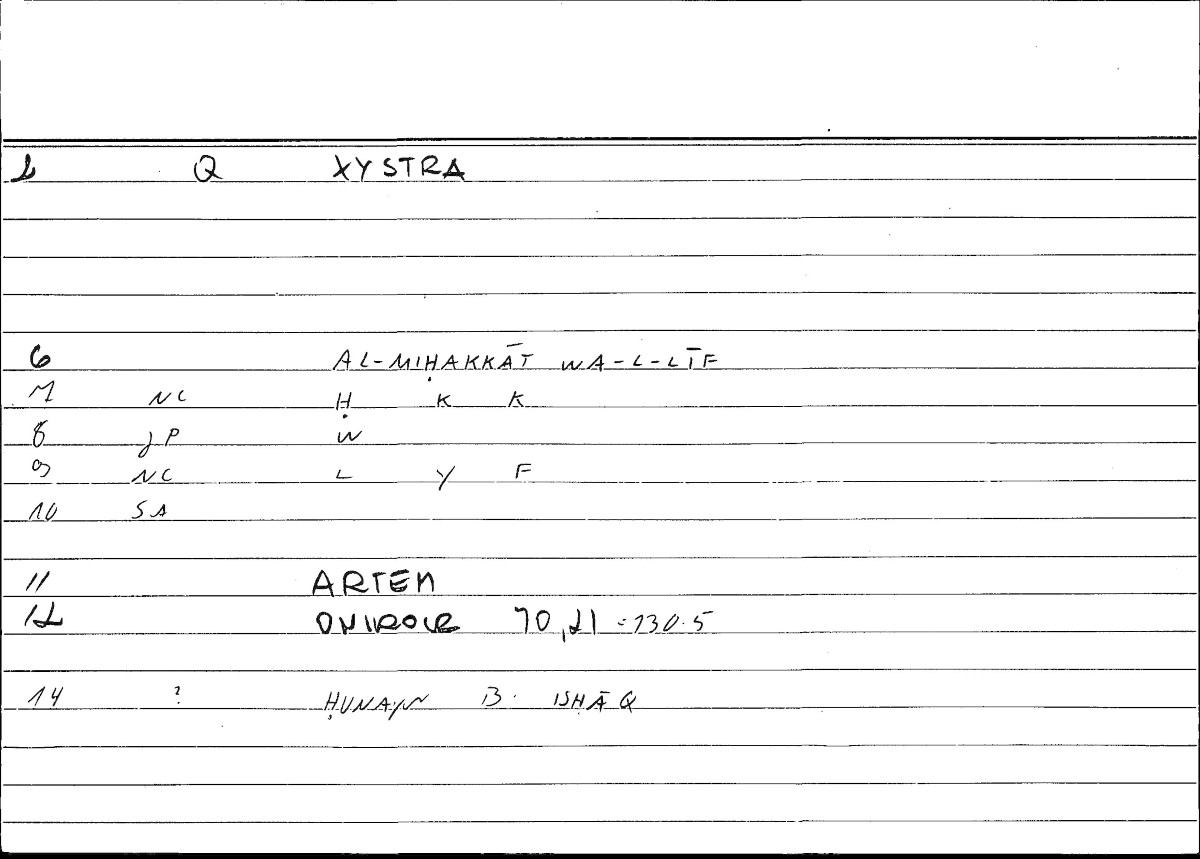 2 Q XYSTRA
6 AL-MIḤAKKĀT WA-L-LĪF
7 NC Ḥ K K
8 JP W
9 NC L Y F
10 SA
11 ARTEM
12 ONIROCR 70,21 = 130.5
14 ? ḤUNAYN B. ISḤĀQ